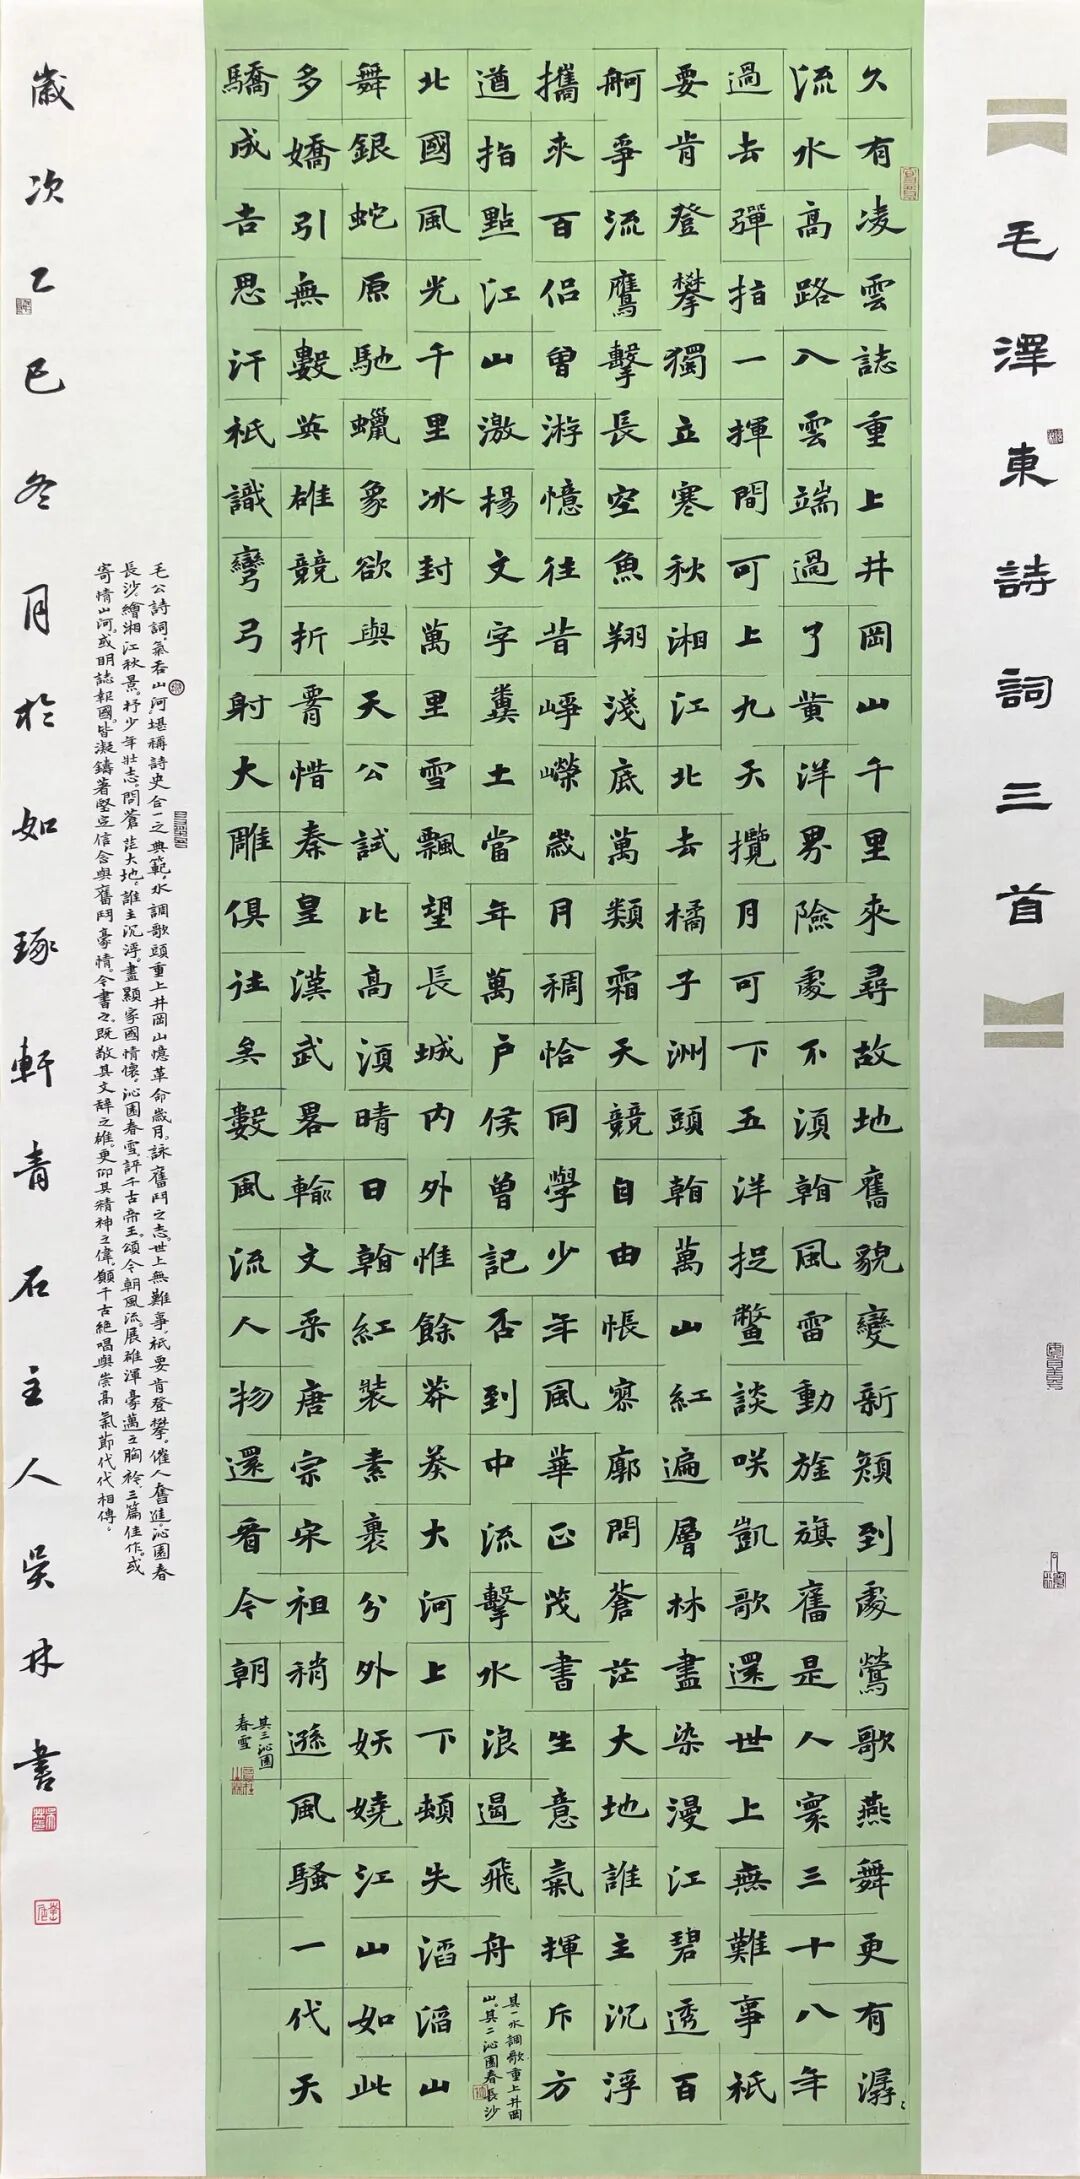 毛澤東詩詞三首
久有凌雲誌重上井岡山千里來尋故地舊貌變新顏到處鶯歌燕舞更有潺〻
流水高路入雲端過了黃洋界險處不須看風雷動旌旗奮是人寰三十八年
過去彈指一揮間可上九天攬月可下五洋捉鱉談咲凱歌還世上無難事祇
要肯登攀獨立寒秋湘江北去橘子洲頭看萬山紅遍層林盡染漫江碧透百
舸爭流鷹擊長空魚翔淺底萬類霜天競自由悵寥廓問蒼茫大地誰主沉浮
攜來百侶曾游憶往昔崢嶸歲月稠恰同學少年風華正茂書生意氣揮斥方
遒指點江山激揚文字糞土當年萬戶侯曾記否到中流擊水浪遏飛舟
其一水調歌重上井岡
山。其二沁園春長沙
北國風光千里冰封萬里雪飄望長城内外惟餘莽莽大河上下頓失滔滔山
舞銀蛇原馳蠟象欲與天公試比高須晴日看紅裝素裹分外妖嬈江山如此
多嬌引無數英雄競折腰惜秦皇漢武畧輸文采唐宗宋祖稍遜風騷一代天
驕成吉思汗祇識彎弓射大雕俱往矣數風流人物還看今朝
其三沁園
春雪
毛公詩詞。氣吞山河。堪稱詩史合一之典範。水調歌頭重上井岡山憶革命歲月。詠奮鬥之志。世上無難事，祇要肯登攀。催人奮進。沁園春
長沙，繪湘江秋景。抒少年壯志。問蒼茫大地。誰主沉浮。盡顯家國情懷。沁園春雪，評千古帝王。頌今朝風流。展雄渾豪邁之胸衿。三篇佳作。或
寄情山河。或明誌報國。皆凝鑄著堅定信念與奮鬥豪情。今書之。既敬其文辭之雄。更仰其精神之偉。願千古絕唱與崇高氣節代代相傳。
歲次乙巳冬月於如琢軒青石主人吳林書